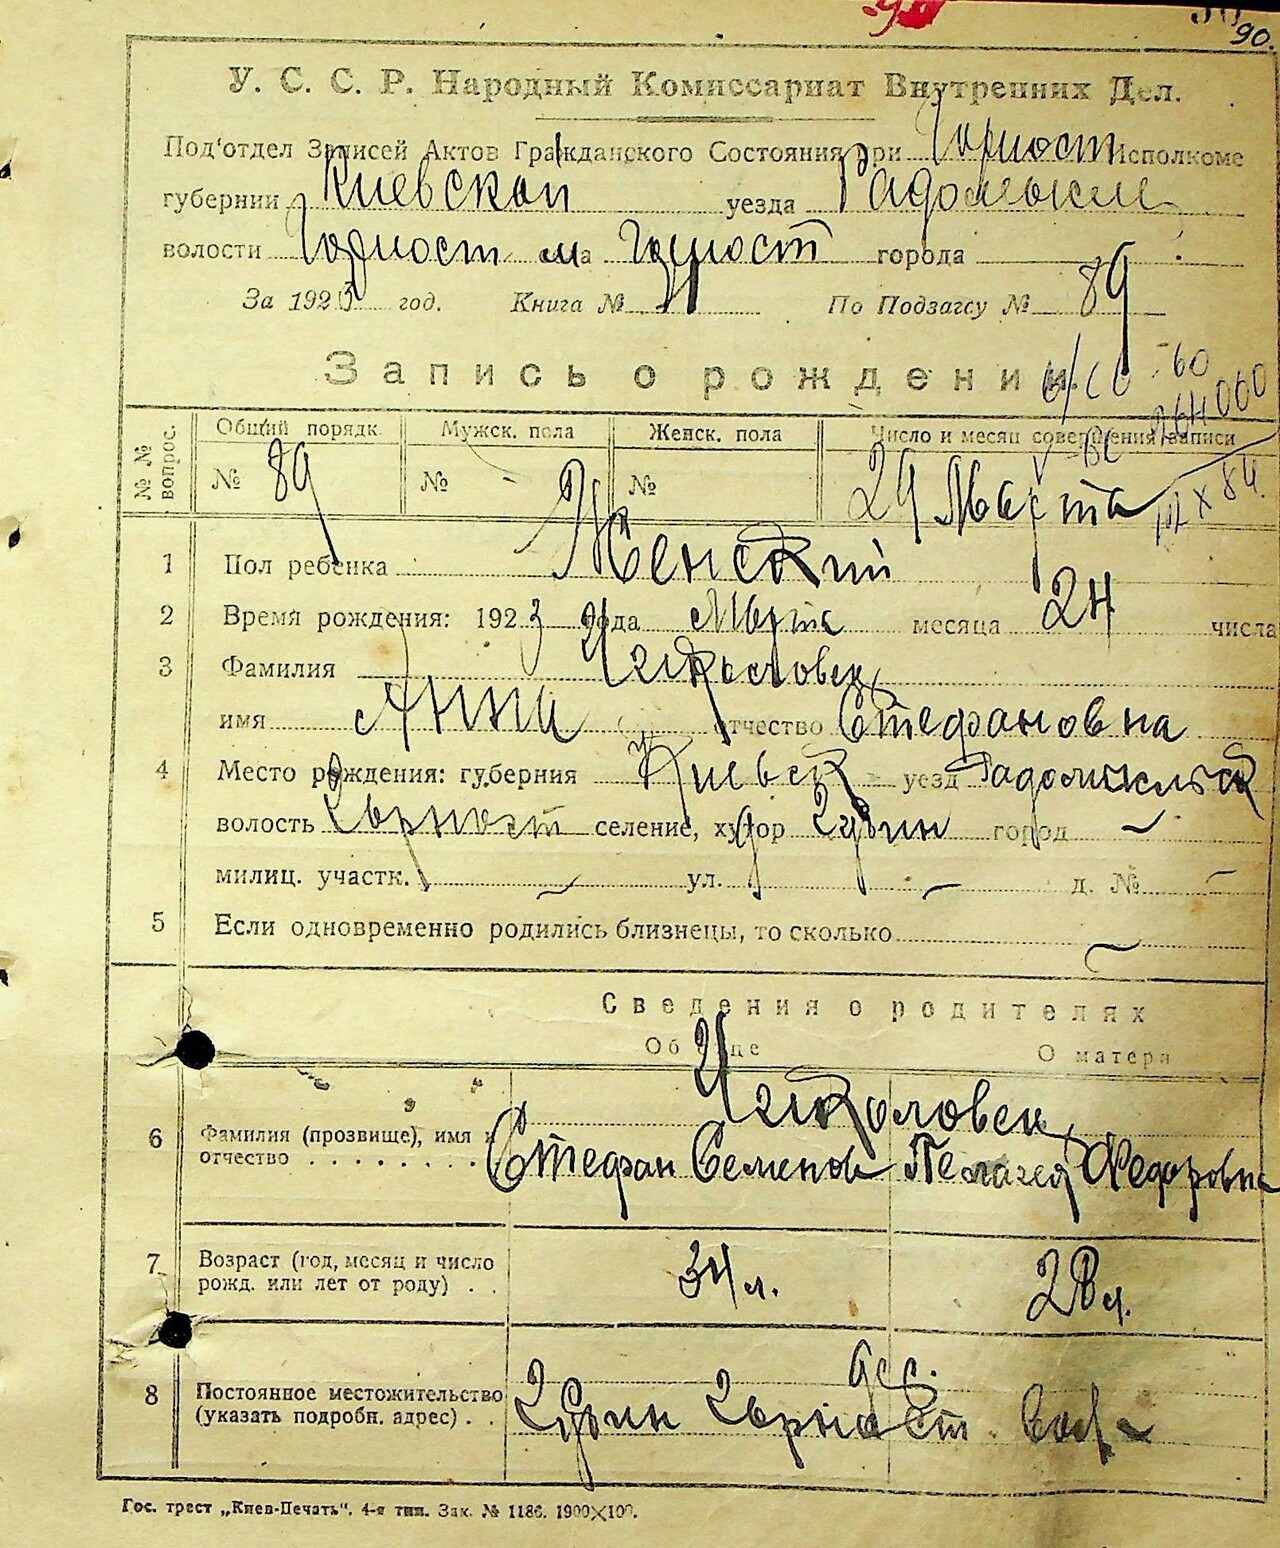 90.
У. С. С. Р. Народный Комиссариат Внутренних Дел.
Под'отдел Записей Актов Гражданского Состояния при Горност Исполкоме
губернии Киевской уезда Радомысле
волости Горност м-ка Горност города
За 1923 год. Книга № По Подзагсу № 89
Запись о рождении.
№ № вопрос.
Общий порядк. Мужск. пола Женск. пола Число и месяц совершения записи
№ 89 № - № 29 Марта
1 Пол ребенка Женский
2 Время рождения: 1923 года Марта месяца 24 числа
3 Фамилия
имя Анна отчество Стефановна
4 Место рождения: губерния Киевск уезд Радомысльск
волость Горност селение, хутор город -
милиц. участк. - ул. - д. № -
5 Если одновременно родились близнецы, то сколько -
Сведения о родителях
Об отце О матери
6 Фамилия (прозвище), имя и
отчество . . . . . . . . Стефан Семенов Пелагея Федоровна
7 Возраст (год, месяц и число
рожд. или лет от роду) . . 34 л. 28 л.
8 Постоянное местожительство
(указать подробн. адрес) . . Горност вол
Гос. трест „Киев-Печать“, 4-я тип. Зак. № 1186. 1900×100.